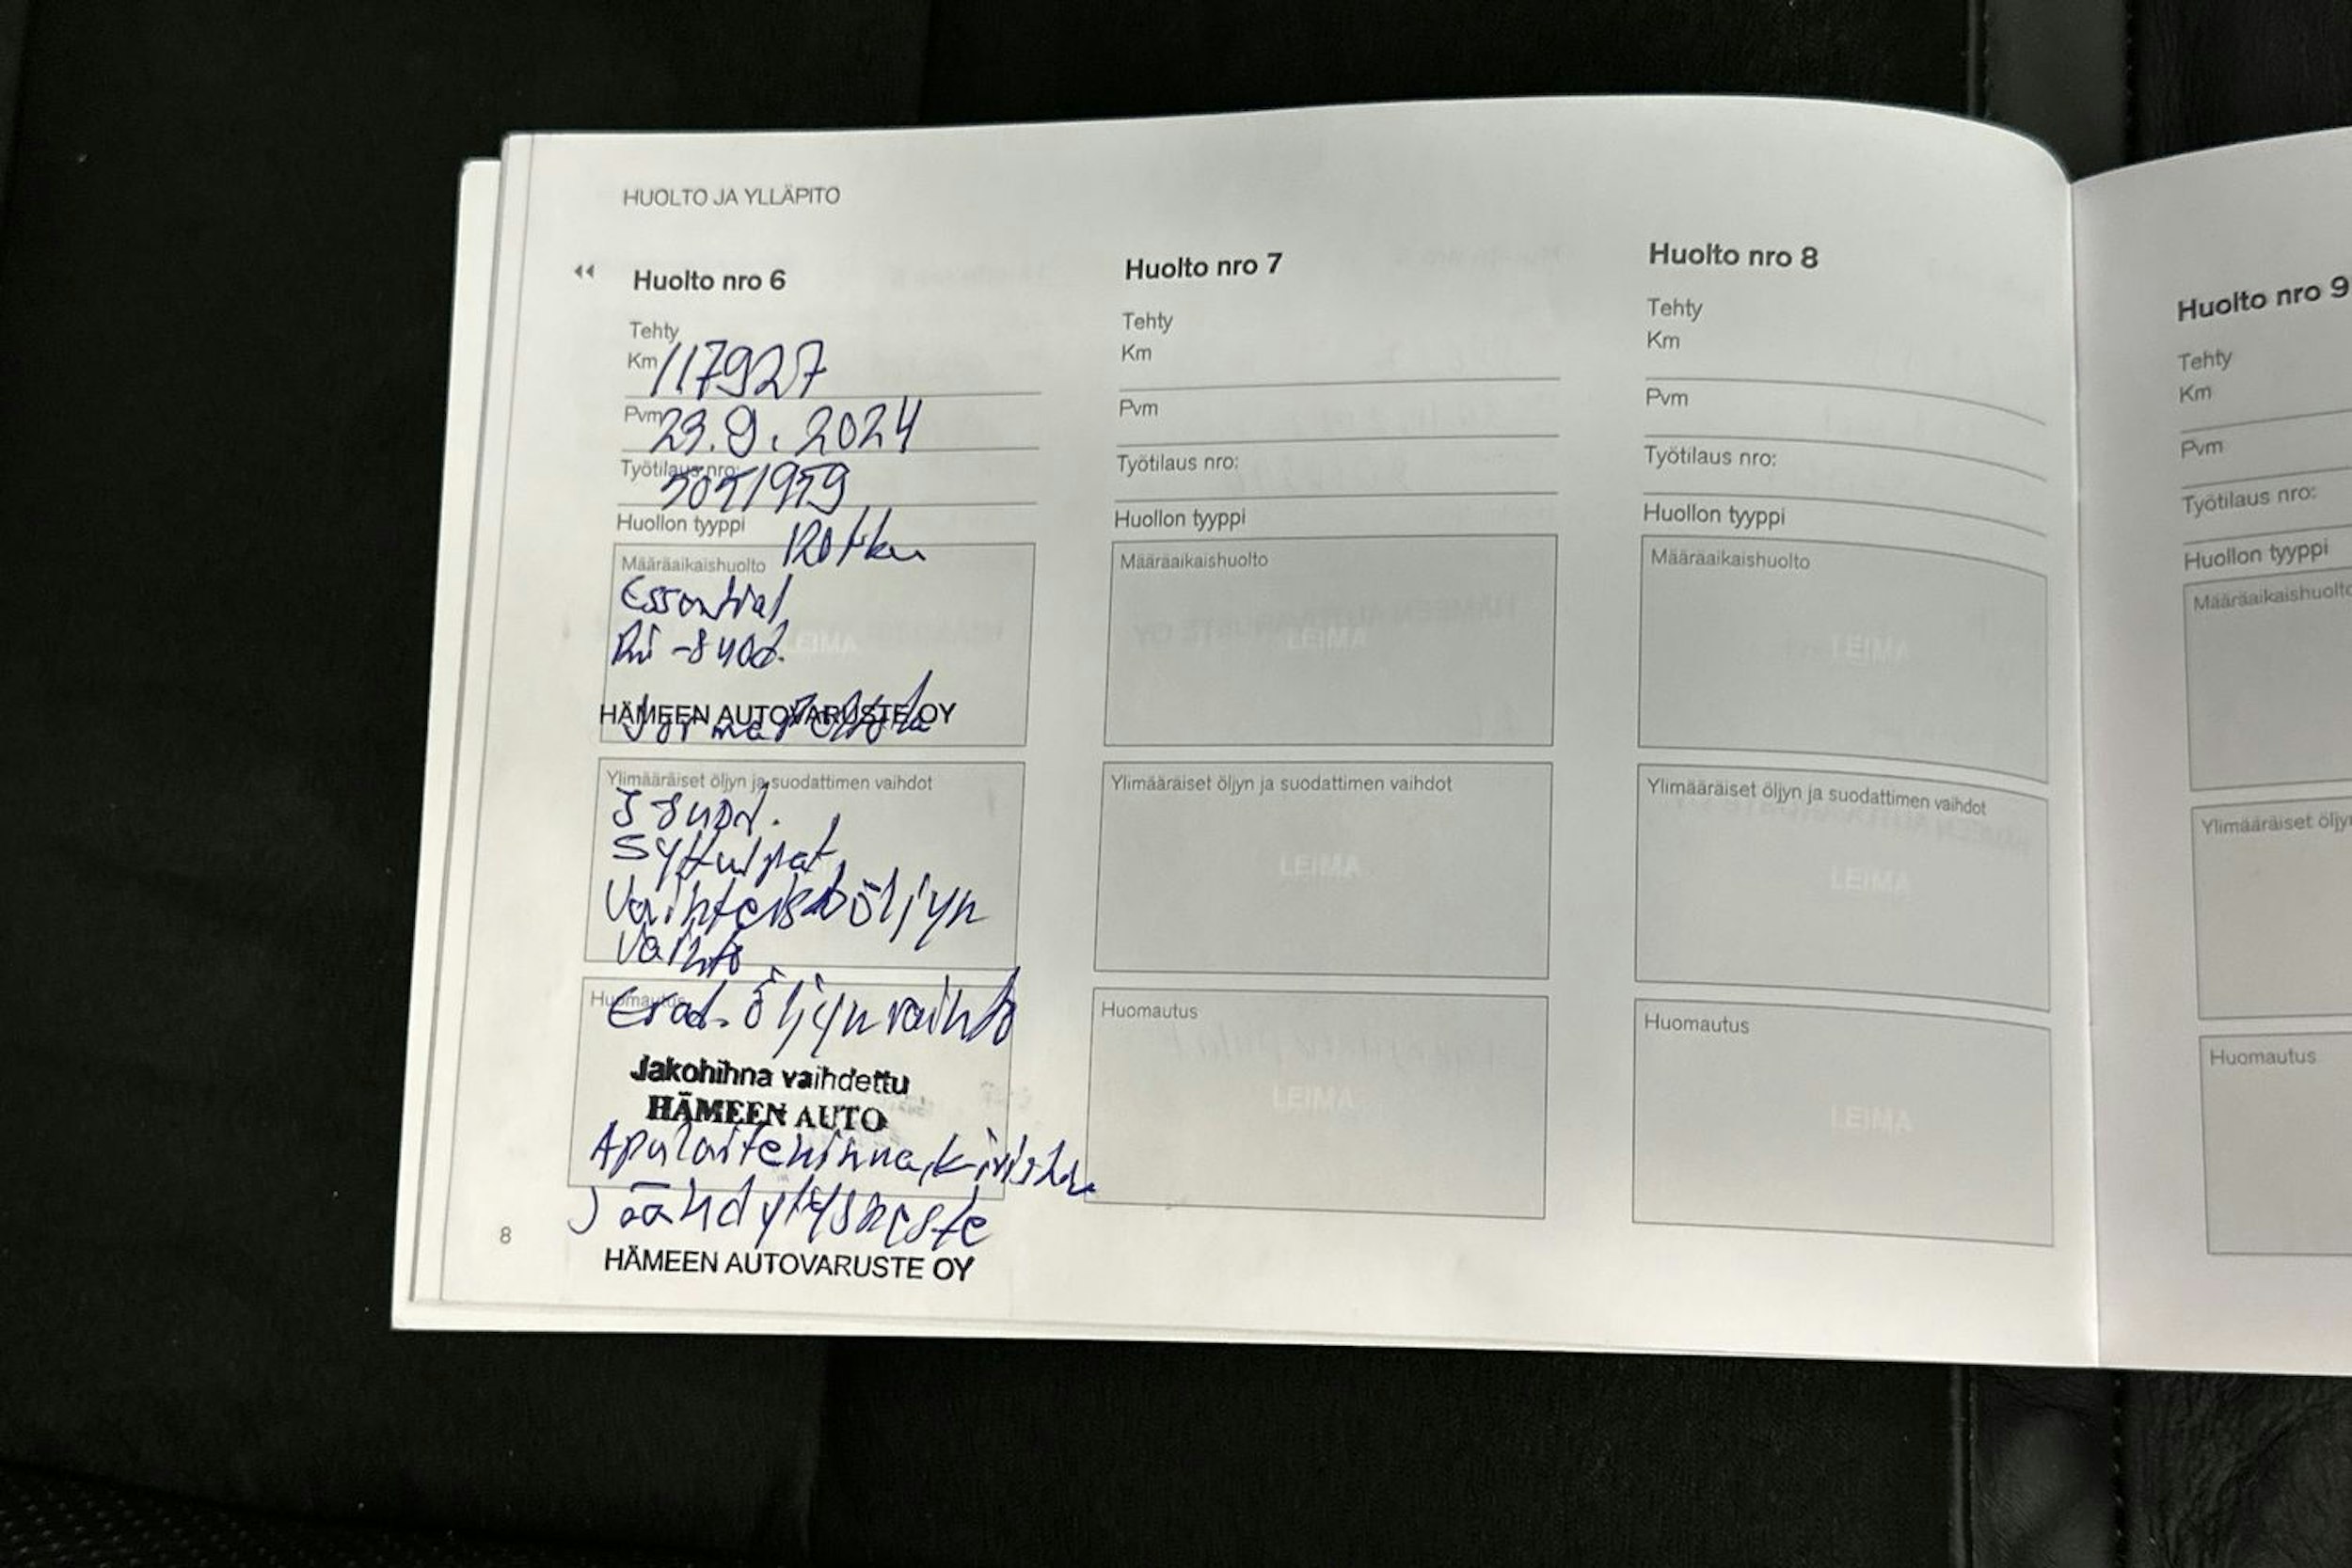 HUOLTO JA YLLÄPITO
Huolto nro 6
Tehty
Km 117927
Pvm 23.9.2024
Työtilaus nro:
Huollon tyyppi
Määräaikaishuolto 120 tkm
Essential
HÄMEEN AUTOVARUSTE OY
Ylimääräiset öljyn ja suodattimen vaihdot
Syttulpat
Vaihteistoöljyn
vaihto
Huomautus
öljyn vaihto
Jakohihna vaihdettu
HÄMEEN AUTO
Apulaitehihna, kiristin
Jäähdytysneste
HÄMEEN AUTOVARUSTE OY
8
Huolto nro 7
Tehty
Km
Pvm
Työtilaus nro:
Huollon tyyppi
Määräaikaishuolto
LEIMA
Ylimääräiset öljyn ja suodattimen vaihdot
LEIMA
Huomautus
LEIMA
Huolto nro 8
Tehty
Km
Pvm
Työtilaus nro:
Huollon tyyppi
Määräaikaishuolto
LEIMA
Ylimääräiset öljyn ja suodattimen vaihdot
LEIMA
Huomautus
LEIMA
Huolto nro 9
Tehty
Km
Pvm
Työtilaus nro:
Huollon tyyppi
Määräaikaishuolto
Ylimääräiset
Huomautus